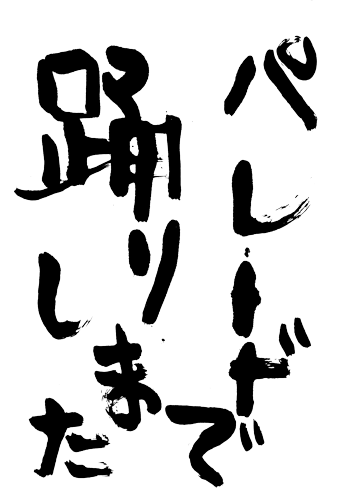 パレードで
踊りました